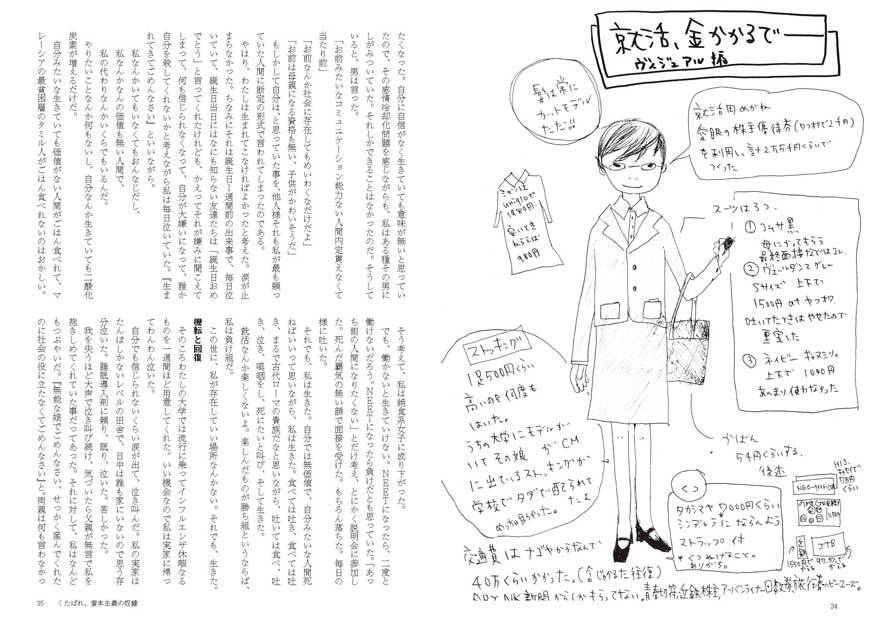 就活、金かかるでー
ヴィジュアル編
髪は常に
カットモデル
タダだ!!
就活用めがね
愛眼の株主優待券(ヤフオクで2千円)
を利用し、計2万5千円くらいで
つくった
シャツは
uniqloで
1980円。
スーツは3つ。
① コムサ 黒
母にかってもらう
最終面接などではコレ
② ヴェールダンス グレー
Sサイズ 上下で
1500円 at ヤフオク
吐いてたときはやせたので
重宝した
③ ネイビー
上下で 1000円
あんまり使わなかった
ストッキング
1足500円くらい
高いのを何度も
はいた。
うちの大学にモデルが
いて その娘が CM
に出ているストッキングが
学校でタダで配られて
かばん
5千円くらいする。
後述
くつ
タカシマヤ 7000円くらい
シンデレラにならんよう
ストラップ付
H.I.S.
JTB
交通費はナゴヤからなんで
40万くらいかかった。(含じかるた往復)
34
たくなった。自分に自信がなく生きていても意味が無いと思ってい
たので、その感情冷却化問題を感じながらも、私はある種その男に
しがみついていた。それしかできることはなかったのだ。そうして
いると、男は言った。
「お前みたいなコミュニケーション能力ない人間内定貰えなくて
当たり前」
「お前なんか社会に存在してもめいわくなだけだよ」
「お前は母親になる資格も無い、子供がかわいそうだ」
もしかして自分は、と思っていた事を、他人様それも私が最も頼っ
ていた人間に断定の形式で言われてしまったのである。
やはり、わたしは生まれてこなければよかったと考えた。涙が止
まらなかった。ちなみにそれは誕生日1週間前の出来事で、毎日泣
いていて、誕生日当日にはなにも知らない友達たちは「誕生日おめ
でとう」と言ってくれたけれども、かえってそれが嫌みに聞こえて
しまって、何も信じられなくなって、自分が大嫌いになって、誰か
自分を殺してくれないかと考えながら私は毎日泣いていた。『生ま
れてきてごめんなさい』といいながら。
私なんかいてもいなくてもおんなじだし、
私なんかなんの価値も無い人間で、
私の代わりなんかいくらでもいるんだ。
やりたいことなんか何もないし、自分なんか生きていても二酸化
炭素が増えるだけだ。
自分みたいな生きていても価値がない人間がごはん食べれて、マ
レーシアの最貧困層のタミル人がごはん食べれないのはおかしい。
そう考えて、私は絶食系女子に成り下がった。
でも、働かないと生きていけない。NEETになったら、二度と
働けないだろう。NEETになったら負けだとも思っていた。「あっ
ち側の人間になりたくない」とだけ考え、とにかく説明会に参加し
た。死んだ覇気の無い顔で面接を受けた。もちろん落ちた。毎日の
様に吐いた。
それでも、私は生きた。自分では無価値で、自分みたいな人間死
ねばいいって思いながら、私は生きた。食べては吐き、食べては吐
き、まるで古代ローマの貴族だなと思いながら、吐いては食べ、吐
き、泣き、嗚咽をし、死にたいと叫び、そして生きた。
就活なんか楽しくないよ。楽しんだものが勝ち組というならば、
私は負け組だ。
この世に、私が存在していい場所なんかない。それでも、生きた。
機転と回復
そのころわたしの大学では流行に乗ってインフルエンザ休暇なる
ものを一週間ほど用意してくれた。いい機会なので私は実家に帰っ
てわんわん泣いた。
自分でも信じられないくらい涙が出て、泣き叫んだ。私の実家は
たんぼしかないレベルの田舎で、日中は誰も家にいないので思う存
分泣いた。睡眠導入剤に頼り、眠り、泣いた。苦しかった。
我を失うほど大声で泣き叫び続け、気づいたら父親が無言で私を
抱きしめてくれていた事だってあった。それに対して、私はなんど
もつぶやいた。『無能な娘でごめんなさい、せっかく産んでくれた
のに社会の役に立たなくてごめんなさい』と。両親は何も言わなかっ
35 くたばれ、資本主義の奴隷